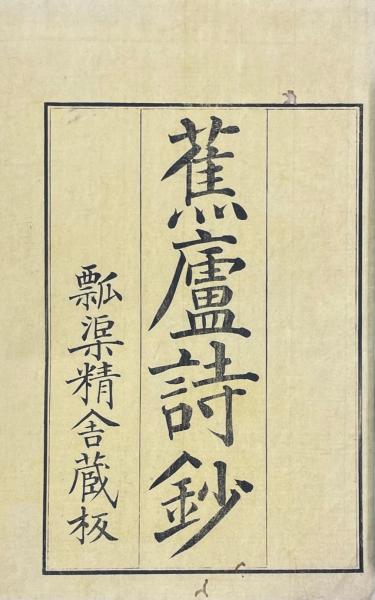 蕉廬詩鈔
瓢渠精舎蔵板